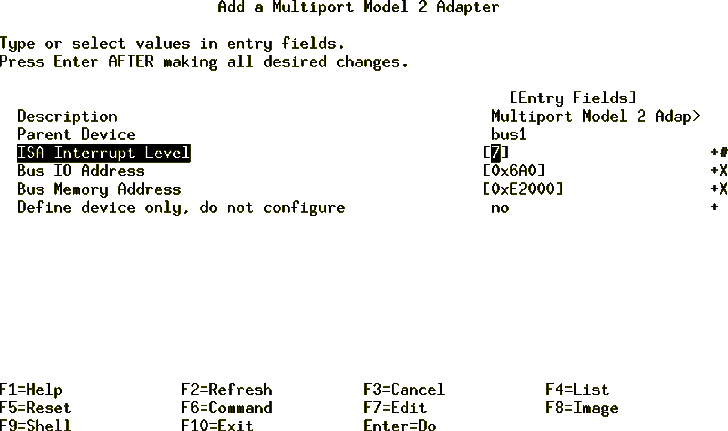 Add a Multiport Model 2 Adapter
Type or select values in entry fields.
Press Enter AFTER making all desired changes.
[Entry Fields]
Description Multiport Model 2 Adap>
Parent Device bus1
ISA Interrupt Level [7] +#
Bus IO Address [0x6A0] +X
Bus Memory Address [0xE2000] +X
Define device only, do not configure no +
F1=Help F2=Refresh F3=Cancel F4=List
F5=Reset F6=Command F7=Edit F8=Image
F9=Shell F10=Exit Enter=Do